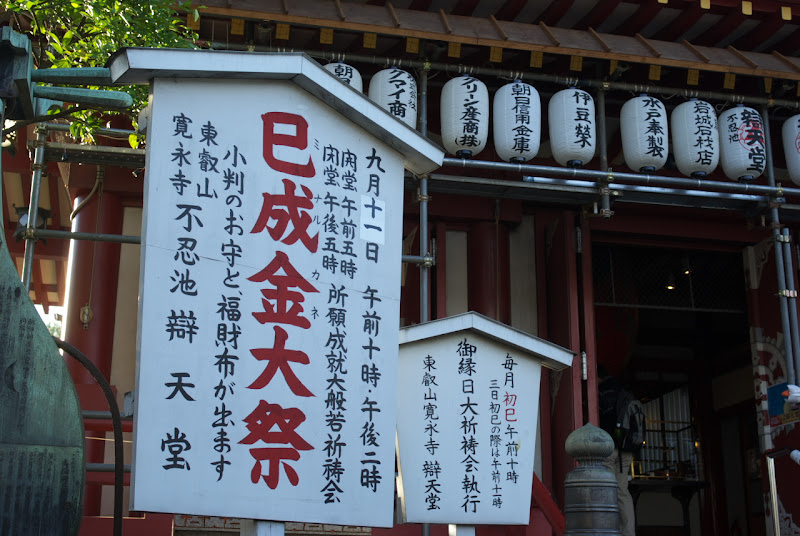 九月十一日 午前十時・午後二時
開堂 午前五時
閉堂 午後五時
所願成就大般若祈祷会
巳成金大祭
ミナルカネ
小判のお守と、福財布が出ます
東叡山
寛永寺 不忍池 辯天堂
毎月初巳午前十時
三日初巳の際は午前十時
御縁日大祈祷会執行
東叡山寛永寺 辯天堂
グマイ商
グリーン産商
朝日信用金庫
伊豆榮
水戸奉製
岩城石材店
不忍池
若天堂